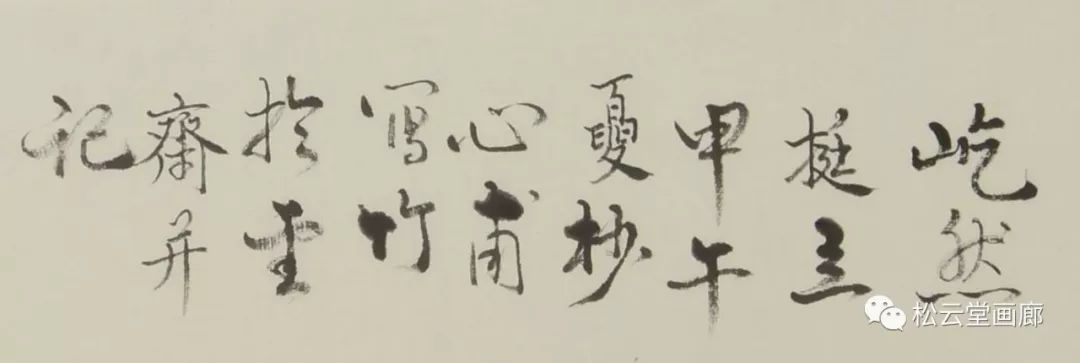 屹然
挺立
甲午
夏杪
心甫
写竹
於
齋并
记
松云堂画廊